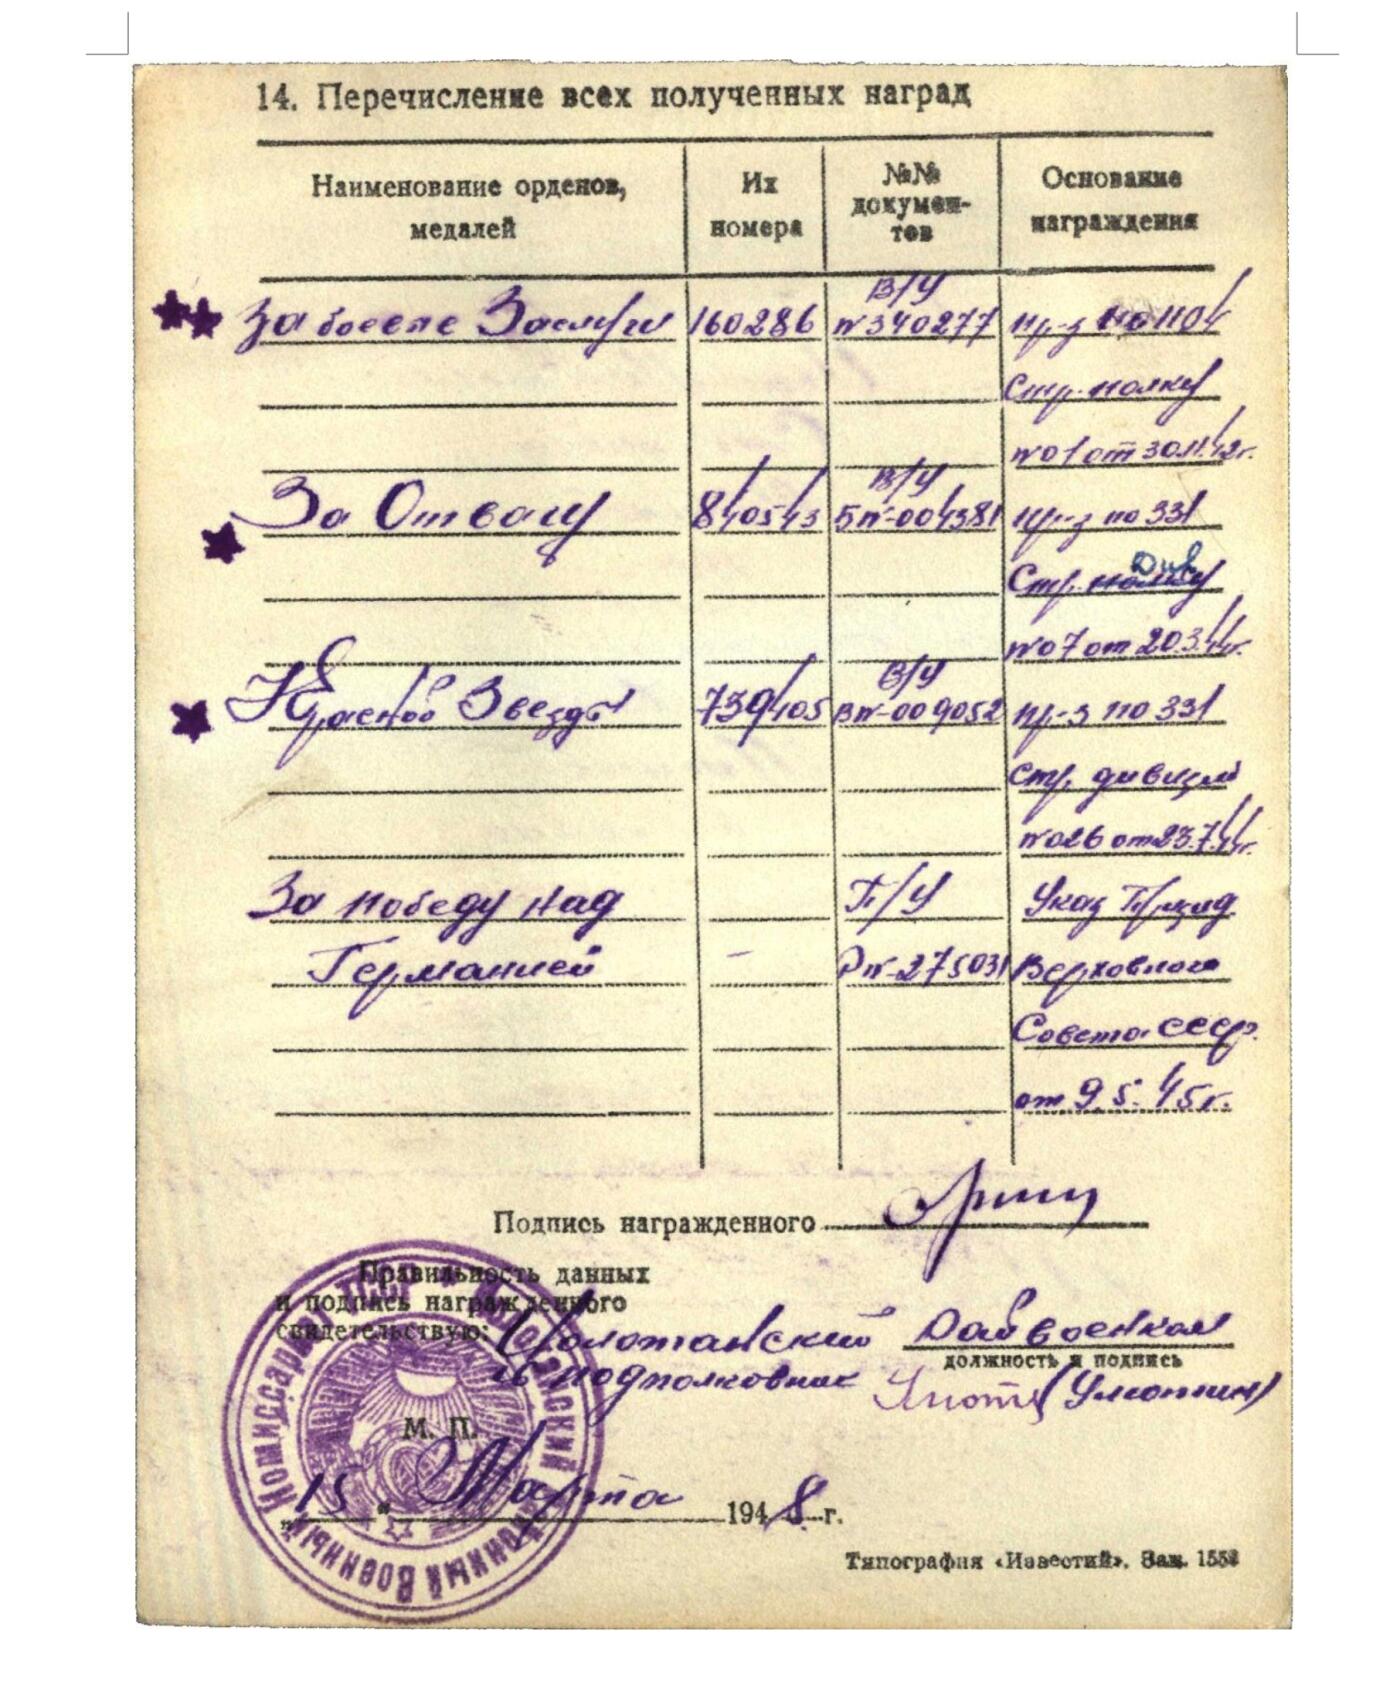 14. Перечисление всех полученных наград
Наименование орденов, медалей
Их номера
№№ документов
Основание награждения
В/У
За боевые Заслуги 160286 №340277 пр-з по 1104
Стр. полку
№01 от 30.11.42г.
В/У
За Отвагу 840543 Б№-004381 пр-з по 331
Див
Стр. полку
№07 от 20.3.44г.
В/У
Красной Звезды 739405 В№-009052 пр-з по 331
стр. дивизии
№026 от 23.7.44г.
За победу над П/У Указ Презид
Германией - Р№-275031 Верховного
Совета СССР.
от 9.5.45г.
Подпись награжденного
Правильность данных
и подпись награжденного
свидетельствую: Колотанский Райвоенком
должность и подпись
подполковник
М. П.
„15" Марта 1948 г.
Типография «Известий». Зак.
Районный Военный Комиссариат